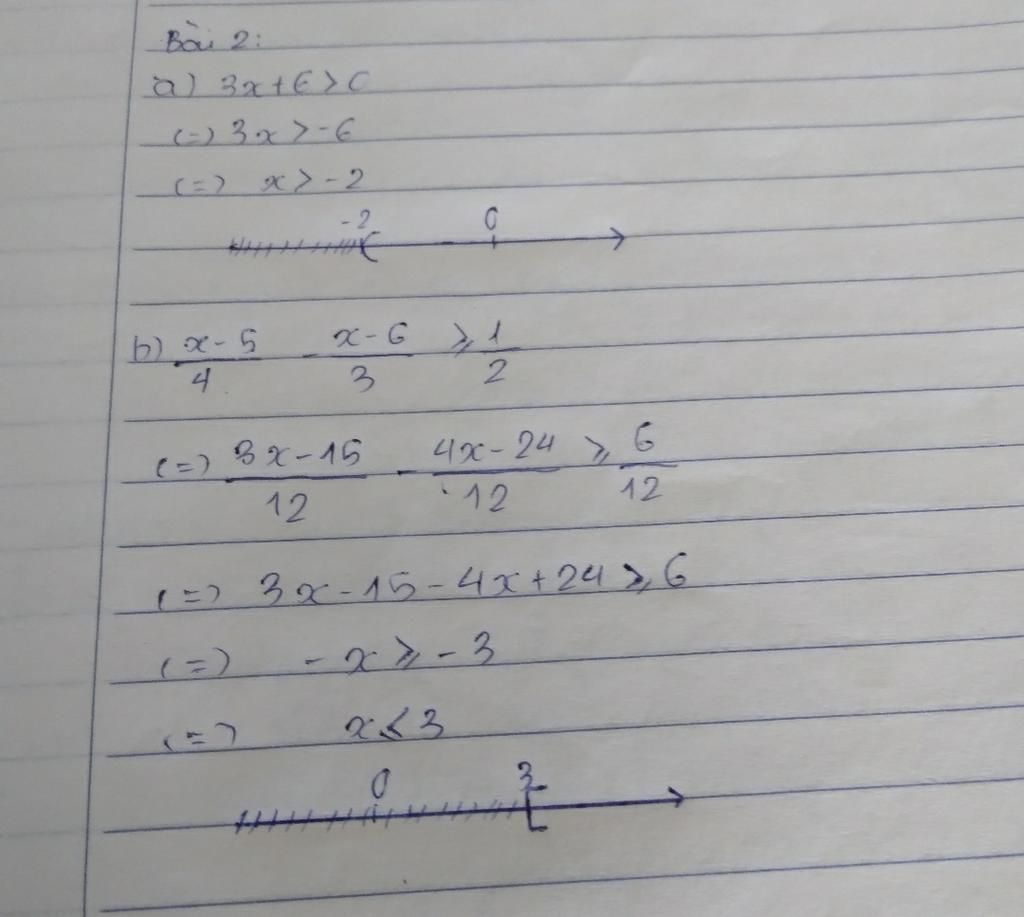 Bài 2:
a) 3x+6>0
(=) 3x>-6
(=) x>-2
-2 0
b) \frac{x-5}{4} - \frac{x-6}{3} ⩾ \frac{1}{2}
(=) \frac{3x-15}{12} - \frac{4x-24}{12} ⩾ \frac{6}{12}
(=) 3x-15-4x+24⩾6
(=) -x⩾-3
(=) x⩽3
0 3